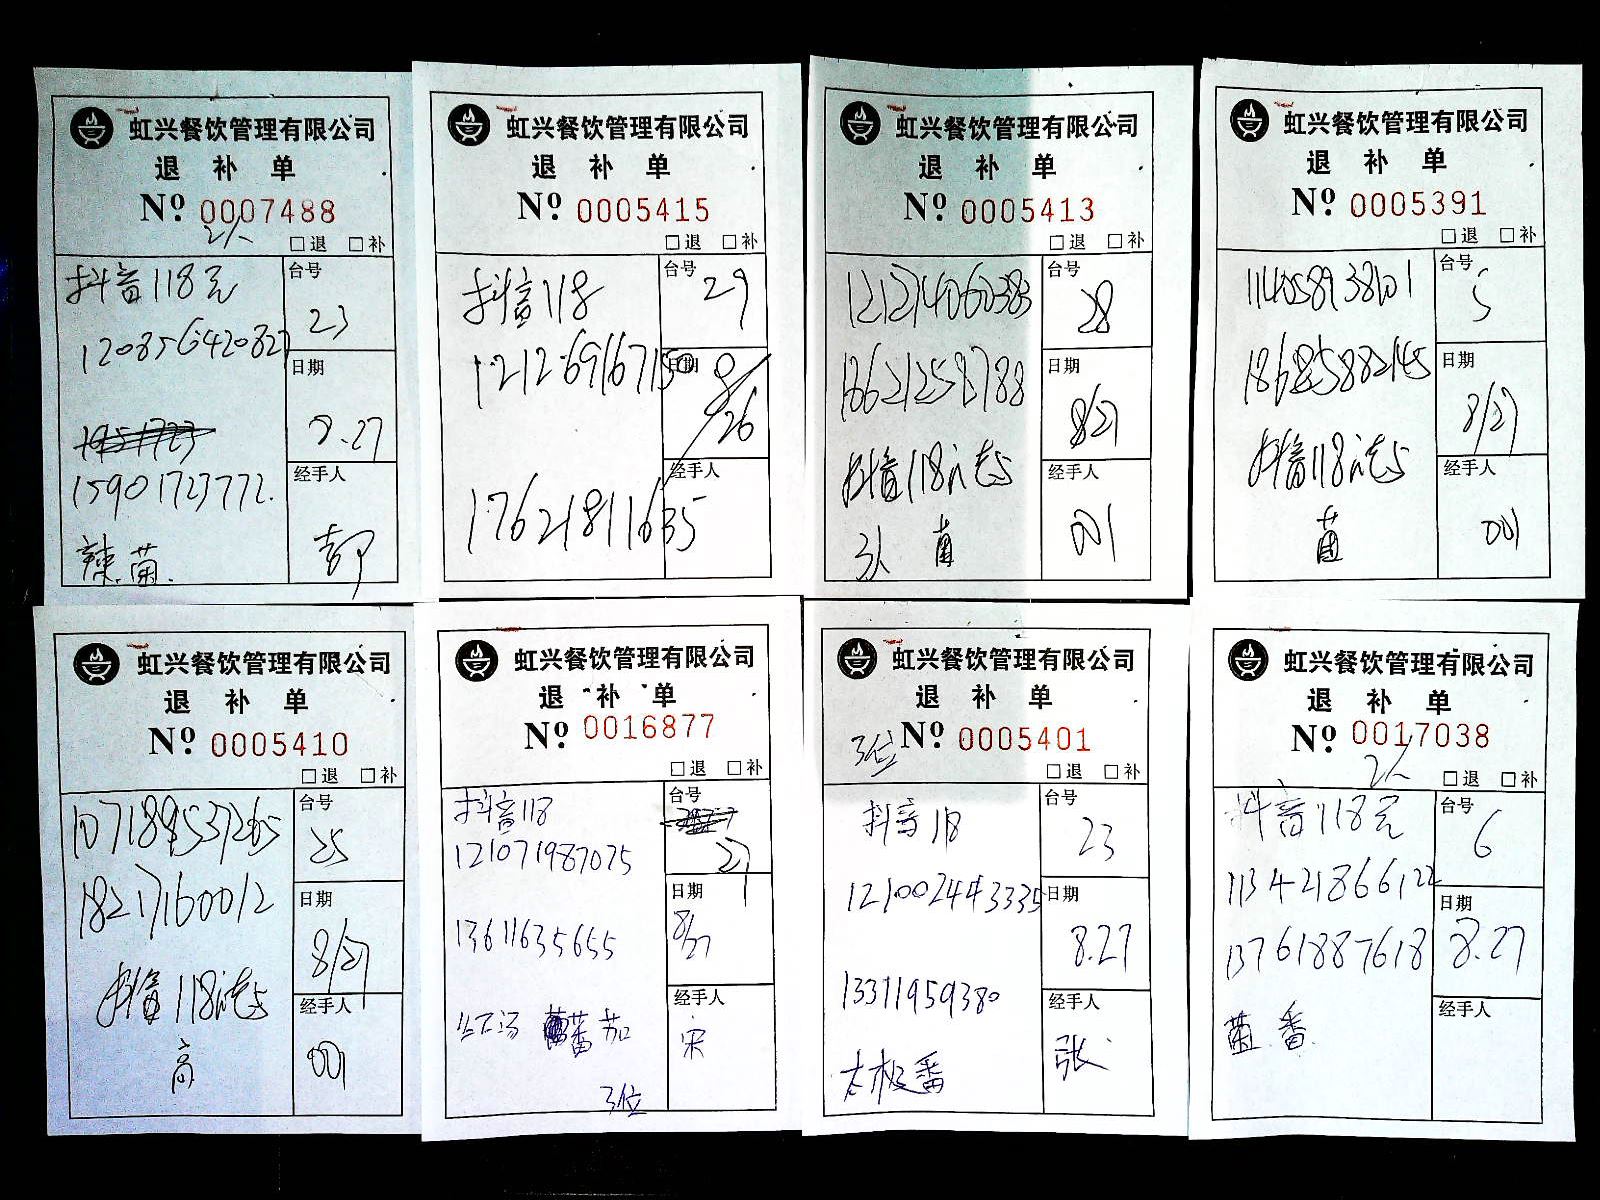 虹兴餐饮管理有限公司
退 补 单
Nº 0007488
2人
□退 □补
抖音118元
120856420827
15901723772.
辣.菌.
台号
23
日期
8.27
经手人
彭
虹兴餐饮管理有限公司
退 补 单
Nº 0005415
□退 □补
抖音118
121269167150
17621811635
台号
29
日期
8/26
经手人
虹兴餐饮管理有限公司
退 补 单
Nº 0005413
□退 □补
121214060383
18621258788
抖音118元
3人 菌
台号
28
日期
8/27
经手人
001
虹兴餐饮管理有限公司
退 补 单
Nº 0005391
□退 □补
18685882145
抖音118元
菌
台号
5
日期
8/27
经手人
001
虹兴餐饮管理有限公司
退 补 单
Nº 0005410
□退 □补
107189537265
18217160012
抖音118元
高
台号
25
日期
8/27
经手人
001
虹兴餐饮管理有限公司
退 补 单
Nº 0016877
□退 □补
抖音118
121071987075
13611635655
番茄
3位
台号
27
日期
8/27
经手人
宋
虹兴餐饮管理有限公司
退 补 单
3位 Nº 0005401
□退 □补
抖音118
121002443335
13311959380
太极番
台号
23
日期
8.27
经手人
张
虹兴餐饮管理有限公司
退 补 单
Nº 0017038
2人
□退 □补
抖音118元
113421866122
13761887618
菌.番.
台号
6
日期
8.27
经手人